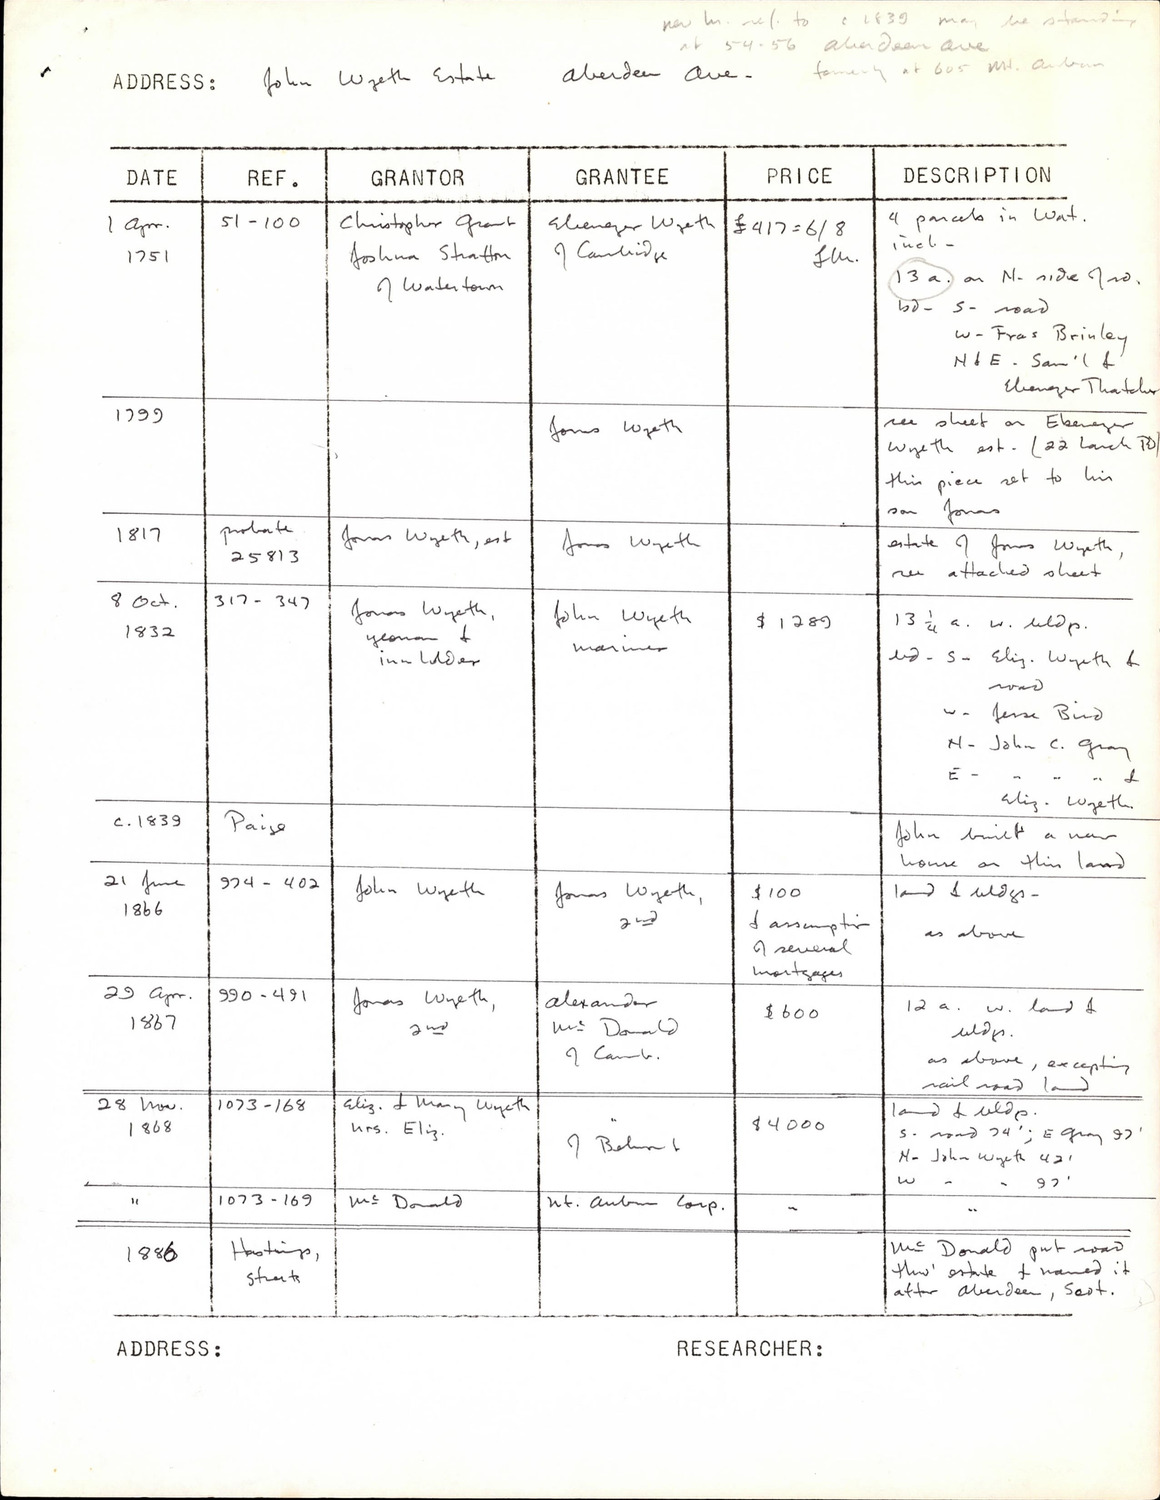 new hs. ref. to c 1839 may be standing
at 54-56 Aberdeen Ave
formerly at 605 Mt. Auburn
ADDRESS: John Wyeth Estate Aberdeen Ave.
DATE REF. GRANTOR GRANTEE PRICE DESCRIPTION
1 Apr. 1751
51-100
Christopher Grant
Joshua Stratton
of Watertown
Ebenezer Wyeth
of Cambridge
£417=6/8
4 parcels in Wat.
incl-
13 a. on N- side of rd.
bd- S- road
W- Fras Brinley
N & E - Sam'l &
Ebenezer Thatcher
1799
Jonas Wyeth
see sheet on Ebenezer
Wyeth est. (22 Larch Rd)
this piece set to his
son Jonas
1817
probate
25813
Jonas Wyeth, est
Jonas Wyeth
estate of Jonas Wyeth,
see attached sheet
8 Oct.
1832
317-347
Jonas Wyeth,
yeoman &
innholder
John Wyeth
mariner
$1289
13 1/4 a. w. bldgs.
bd- S- Eliz. Wyeth &
road
W- Jesse Bird
N- John C. Gray
E- " " " &
Eliz. Wyeth.
c.1839
Paige
John built a new
house on this land
21 June
1866
974-402
John Wyeth
Jonas Wyeth,
2nd
$100
& assumption
of several
mortgages
land & bldgs-
as above
29 Apr.
1867
990-491
Jonas Wyeth,
2nd
Alexander
Mc Donald
of Camb.
$600
12 a. w. land &
bldgs.
as above, excepting
rail road land
28 Nov.
1868
1073-168
Eliz. & Mary Wyeth
hrs. Eliz.
"
of Belmont
$4000
land & bldgs.
S. road 74'; E Gray 97'
N- John Wyeth 42'
W " " 97'
"
1073-169
Mc Donald
Mt. Auburn Corp.
"
"
1886
Hastings,
streets
Mc Donald put road
thro' estate & named it
after Aberdeen, Scot.
ADDRESS: RESEARCHER: